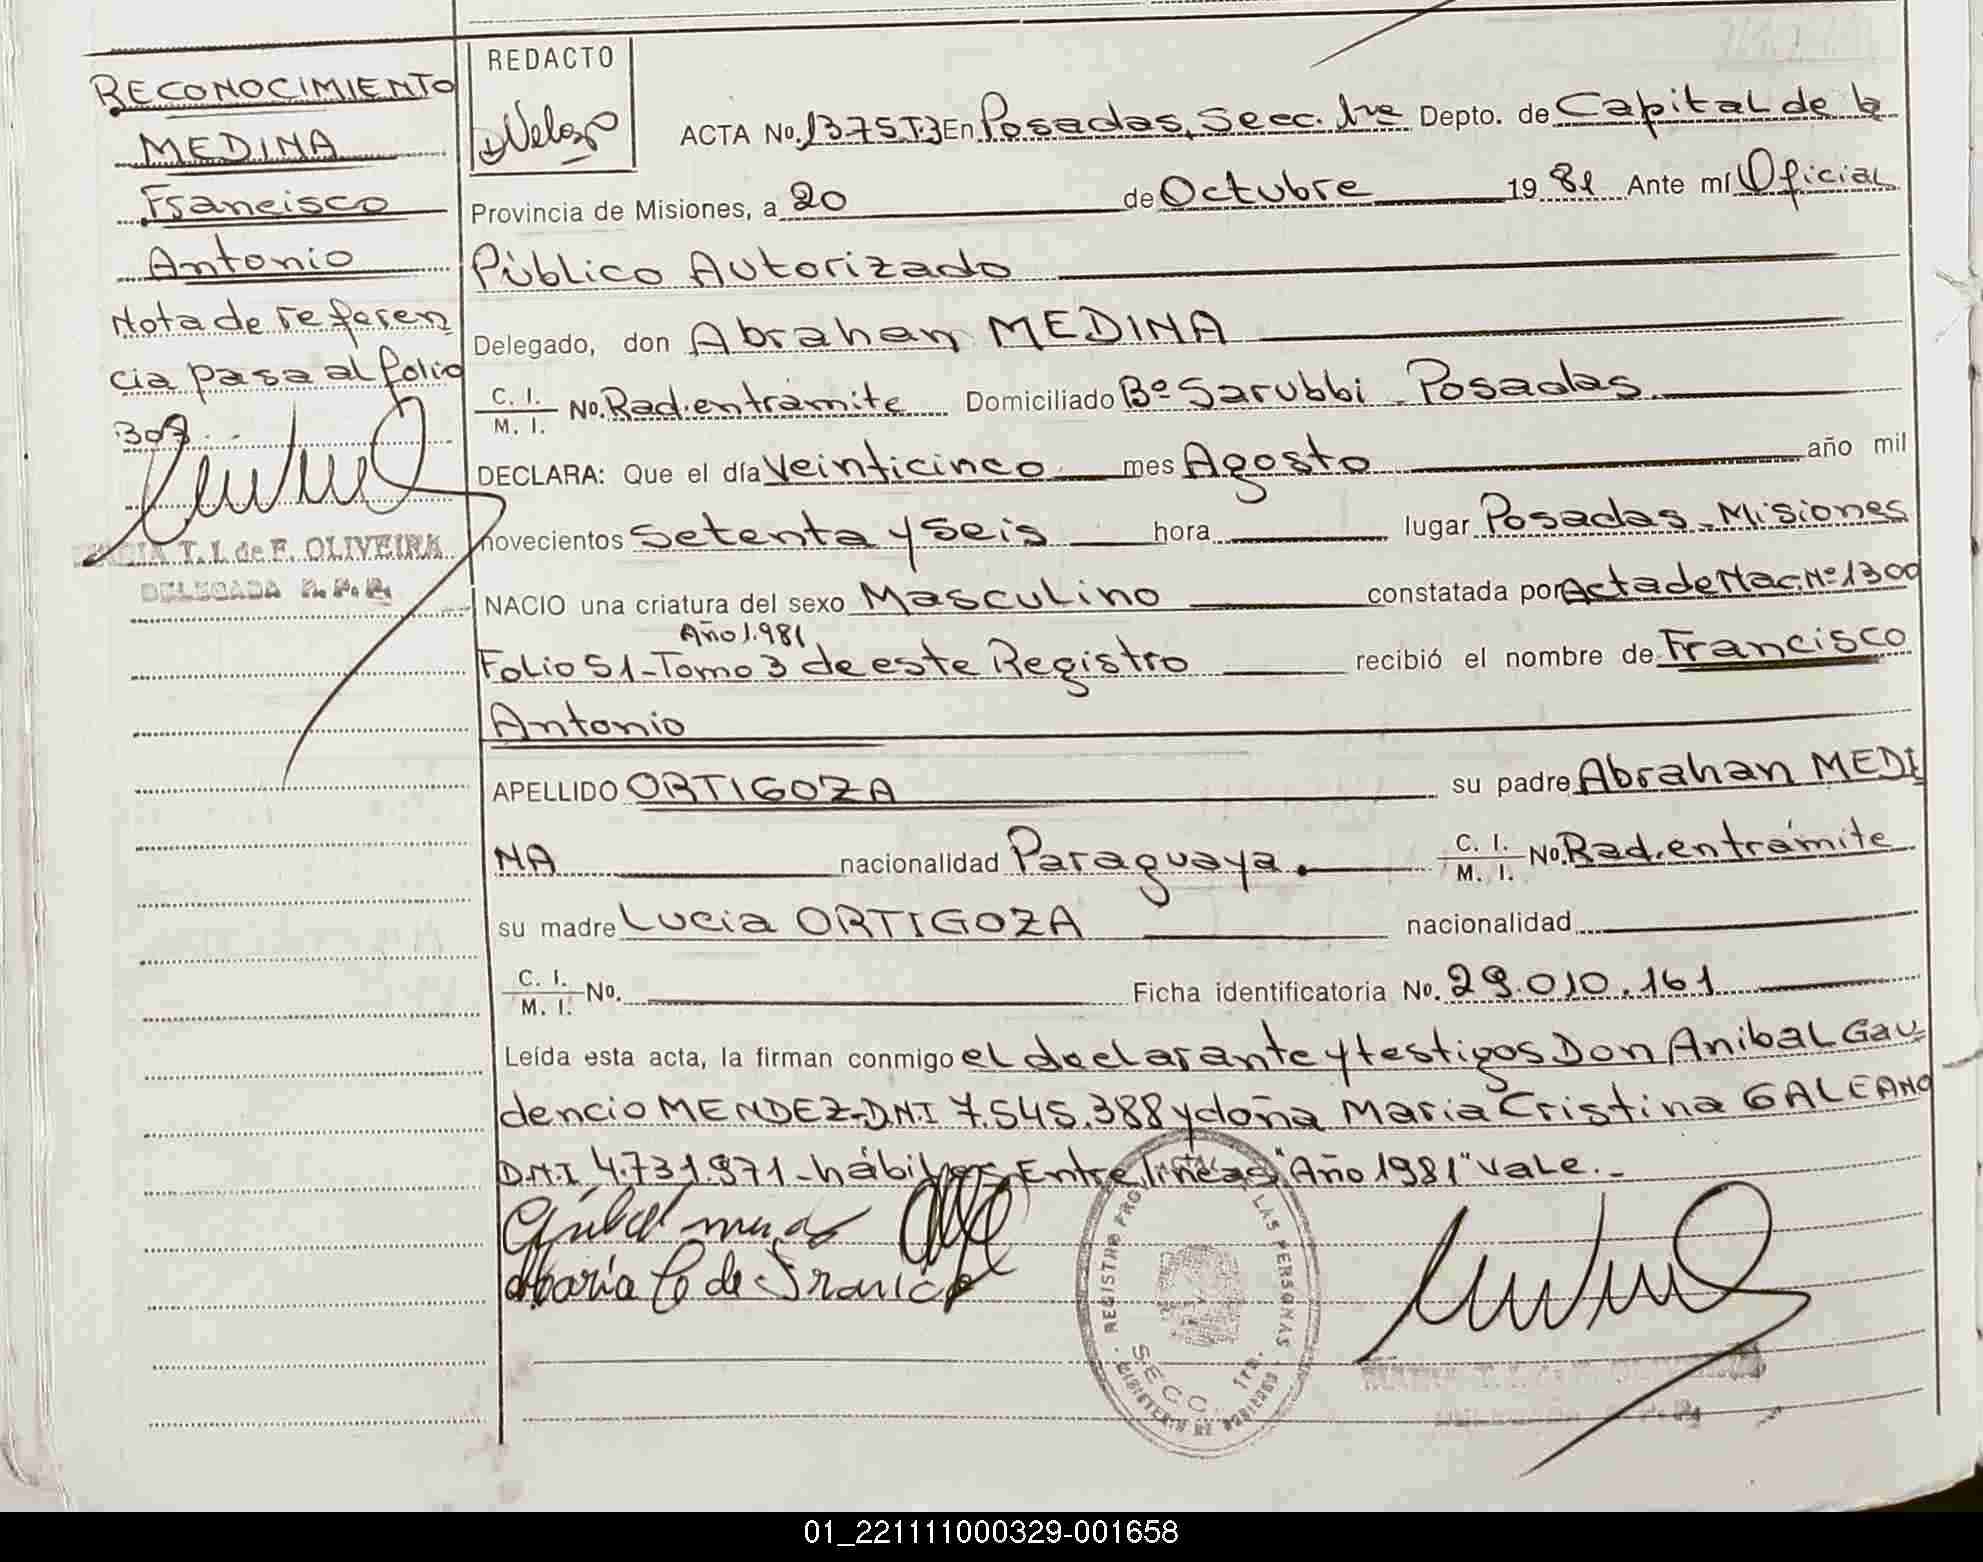 RECONOCIMIENTO
MEDINA
Francisco
Antonio
Nota de referen
cia pasa al folio
307
T. I. de F. OLIVEIRA
DELEGADA R. P. P.
REDACTO
DVelozo
ACTA No. 1375T.3 En Posadas, Secc. 1ra Depto. de Capital de la
Provincia de Misiones, a 20 de Octubre 19 81 Ante mí Oficial
Público Autorizado
Delegado, don Abrahan MEDINA
C. I. / M. I. No. Rad. en trámite Domiciliado Bº Sarubbi - Posadas
DECLARA: Que el día Veinticinco mes Agosto año mil
novecientos Setenta y Seis hora lugar Posadas - Misiones
NACIO una criatura del sexo Masculino constatada por Acta de Nac. Nº 1300
Año 1.981
Folio 51 - Tomo 3 de este Registro recibió el nombre de Francisco
Antonio
APELLIDO ORTIGOZA su padre Abrahan MEDI
NA nacionalidad Paraguaya. C. I. / M. I. No. Rad. en trámite
su madre Lucia ORTIGOZA nacionalidad
C. I. / M. I. No. Ficha identificatoria No. 29.010.161
Leída esta acta, la firman conmigo el declarante y testigos Don Anibal Gau
dencio MENDEZ - D.N.I 7.545.388 y doña Maria Cristina GALEANO
D.N.I 4.731.971 - hábiles - Entre líneas "Año 1981" Vale. -
REGISTRO LAS PERSONAS
SECC. 1ra.
MINISTERIO DE GOBIERNO
01_221111000329-001658